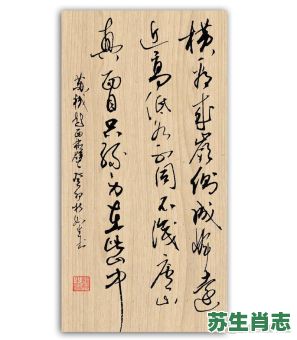 横看成岭侧成峰远
近高低各不同不识庐山
真面目只缘身在此山中
苏轼题西林壁
苏生肖志